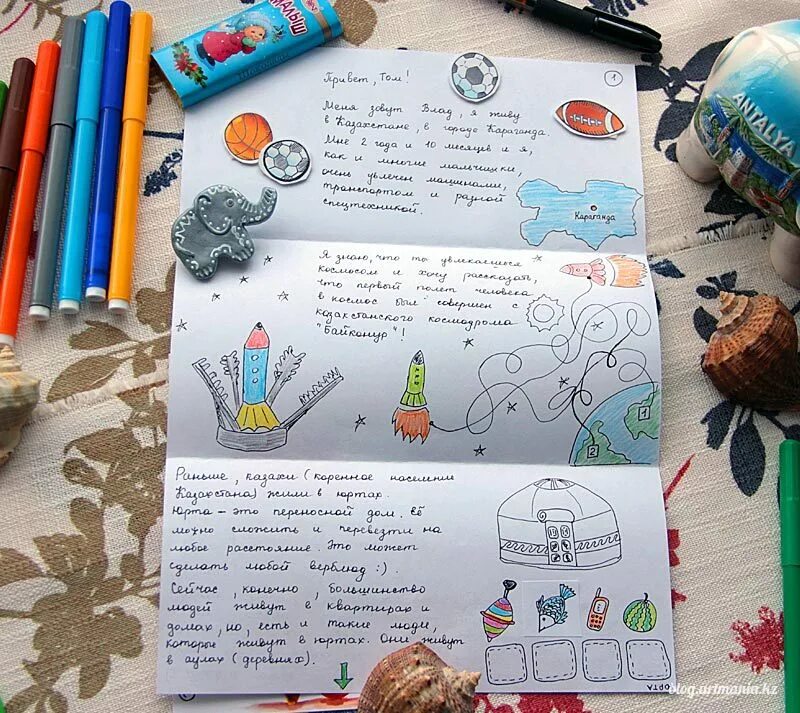 МАЛЫШ
ANTALYA
1
Привет, Том!
Меня зовут Влад, я живу
в Казахстане, в городе Караганда.
Мне 2 года и 10 месяцев и я,
как и многие мальчишки,
очень увлечен машинами,
транспортом и разной
спецтехникой.
Караганда
Я знаю, что ты увлекаешься
космосом и хочу рассказать,
что первый полет человека
в космос был совершен с
казахстанского космодрома
"Байконур"!
1
2
Раньше, казахи (коренное население
Казахстана) жили в юртах.
Юрта – это переносной дом. Её
можно сложить и перевезти на
любое расстояние. Это может
сделать любой верблюд :).
Сейчас, конечно, большинство
людей живут в квартирах и
домах, но, есть и такие люди,
которые живут в юртах. Они живут
в аулах (деревнях).
ЮРТА
blog.artmania.kz